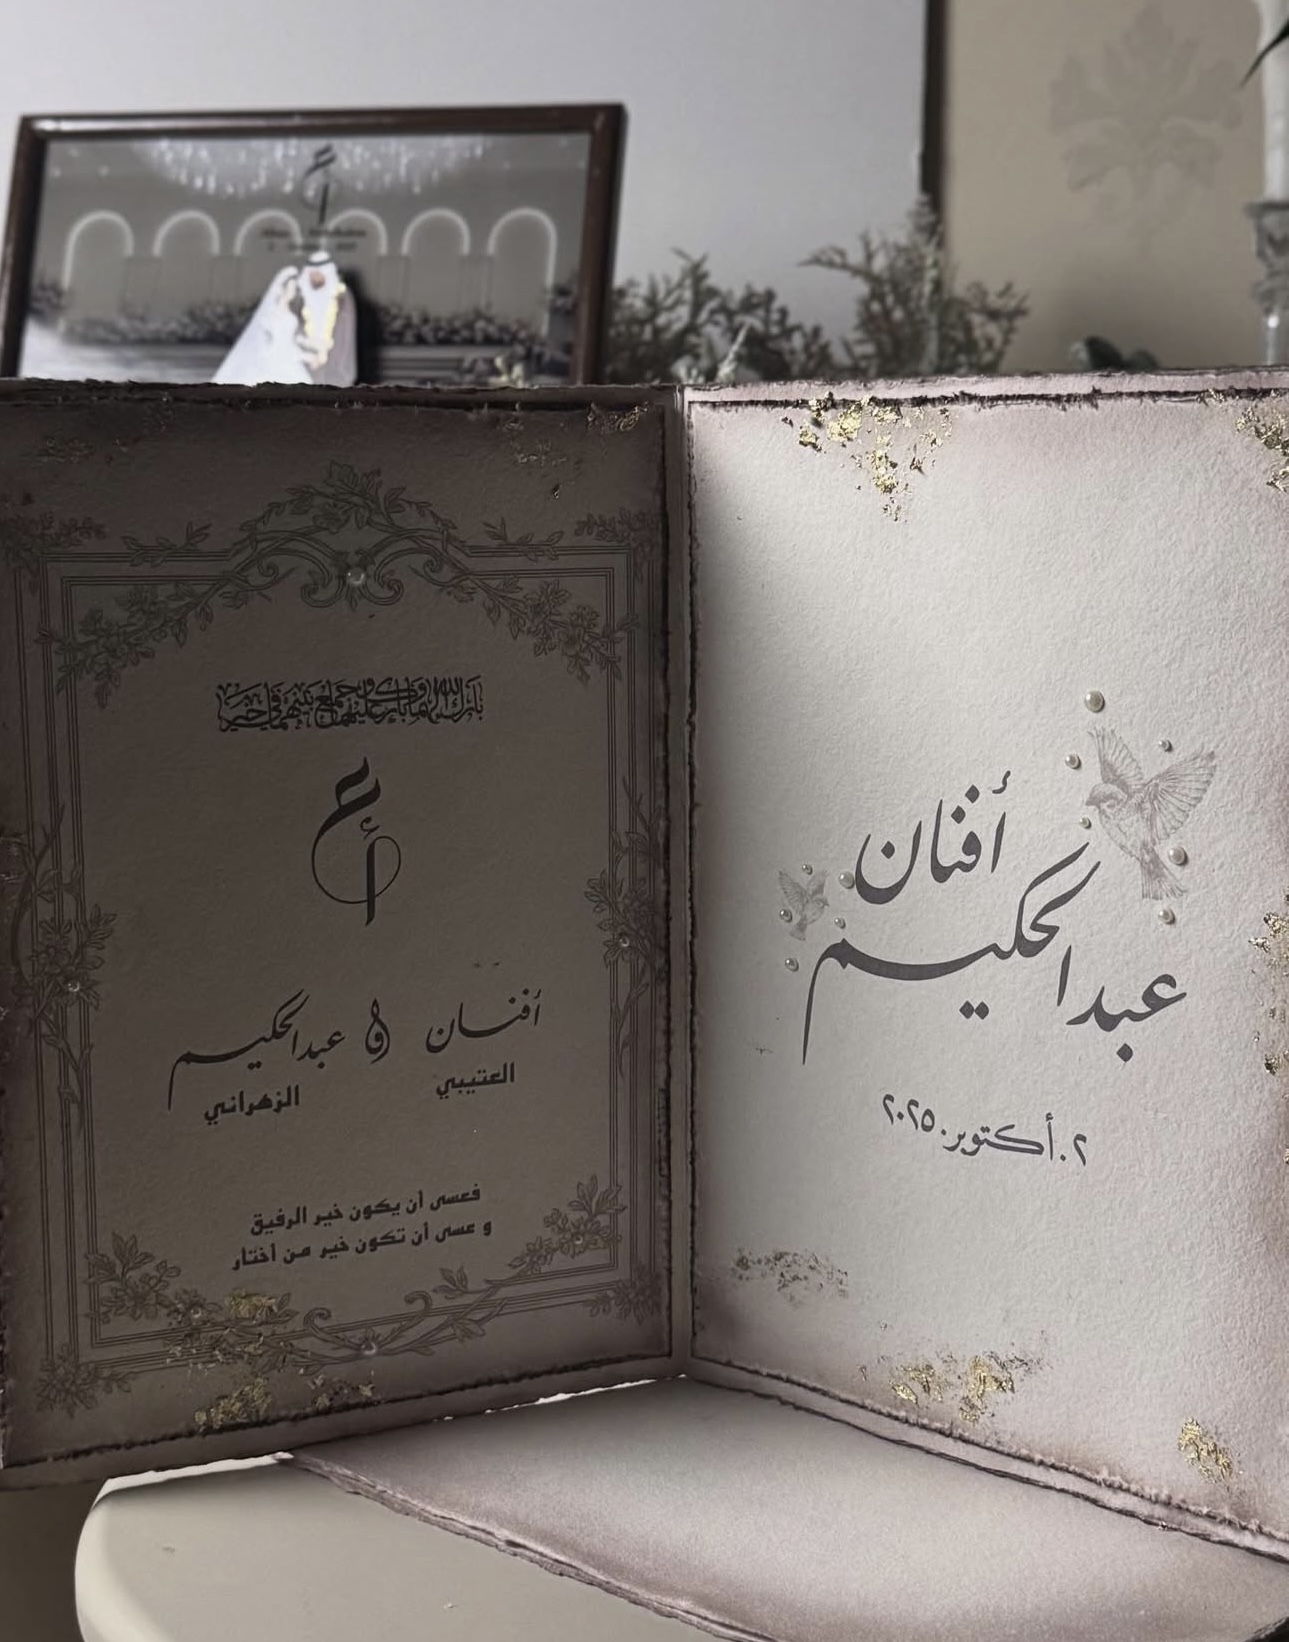 أفنان
عبدالحكيم
٢.أكتوبر.٢٠٢٥
بارك الله لهما وبارك عليهما وجمع بينهما في خير
ع
أ
أفنـان و عبدالحكيم
العتيبي الزهراني
فعسى أن يكون خير الرفيق
و عسى أن تكون خير من أختار
ع
أ